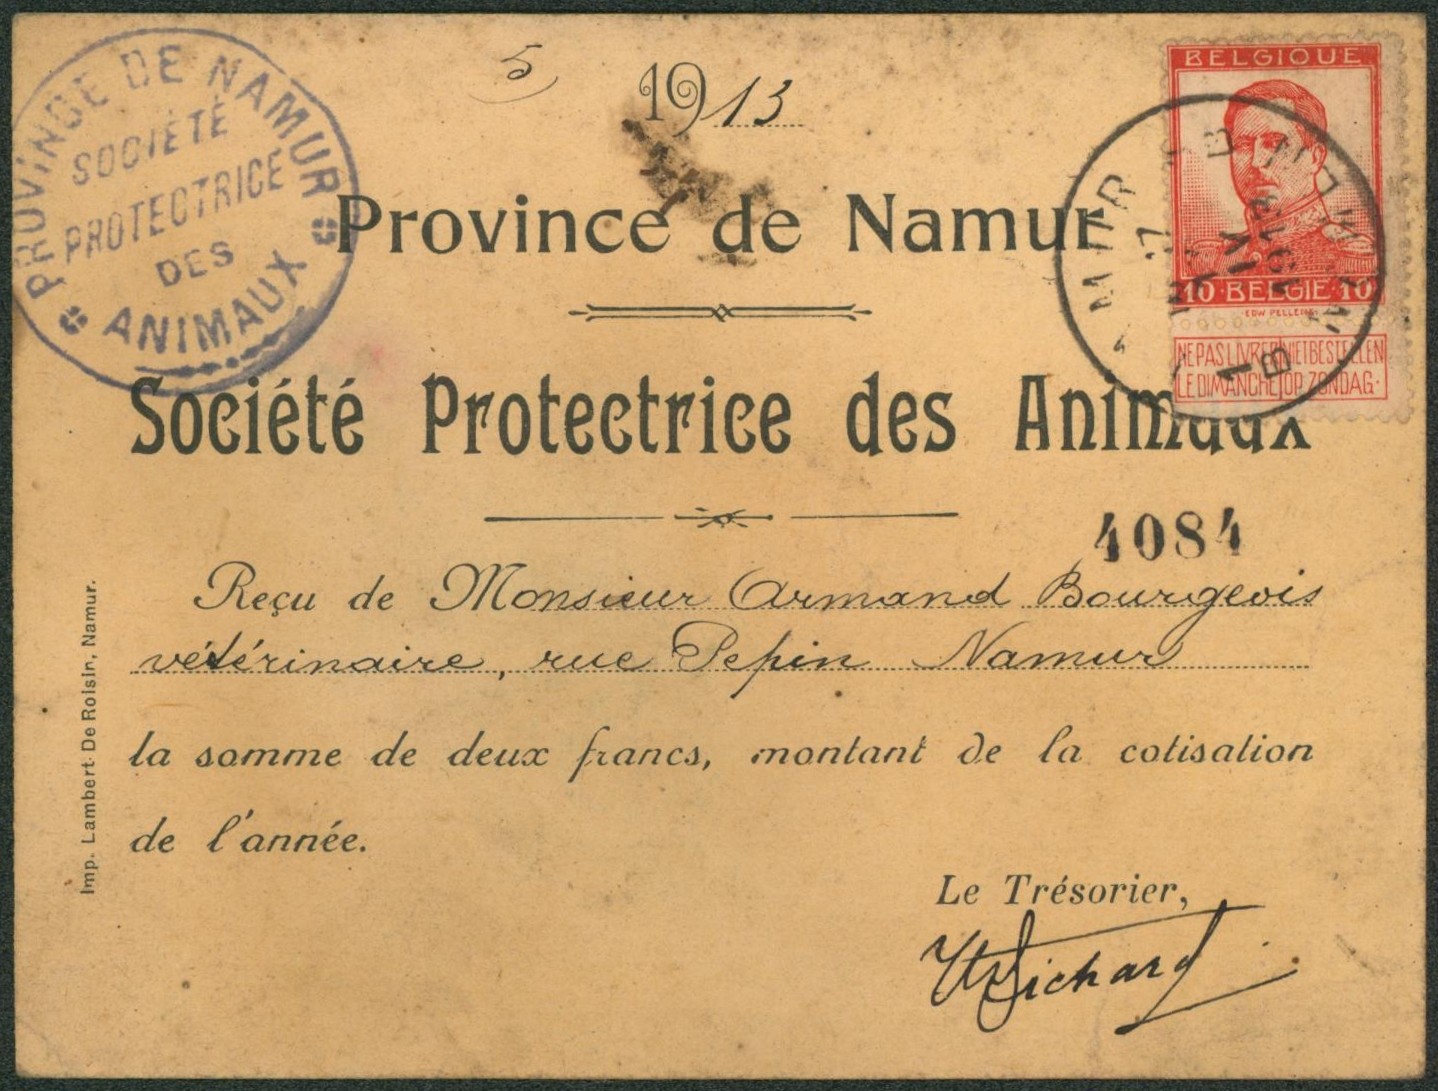 PROVINCE DE NAMUR
SOCIÉTÉ
PROTECTRICE
DES
ANIMAUX
5
1913
BELGIQUE
10 · BELGIË · 10
EDW PELLENS
NE PAS LIVRER NIET BESTELLEN
LE DIMANCHE OP ZONDAG.
1913
Province de Namur
Société Protectrice des Animaux
4084
Reçu de Monsieur Armand Bourgeois
vétérinaire, rue Pepin Namur
la somme de deux francs, montant de la cotisation
de l'année.
Le Trésorier,
Imp. Lambert-De Roisin, Namur.